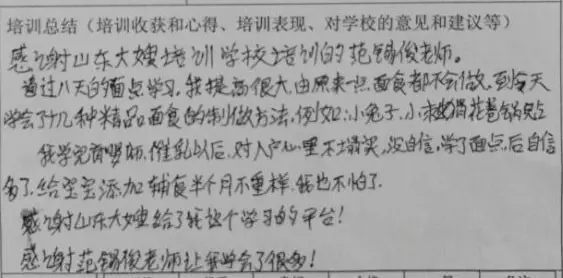 培训总结（培训收获和心得、培训表现、对学校的意见和建议等）
感谢山东大嫂培训学校培训的范锡俊老师。
通过八天的面点学习，我提高很大，由原来一点面食都不会做，到今天
学会了十几种精品面食的制做方法，例如：小兔子、小刺猬、花卷
我学完育婴师，催乳以后，对入户心里不塌实，没自信，学了面点后自信
多了，给宝宝添加辅食半个月不重样，我也不怕了。
感谢山东大嫂给了我这个学习的平台！
感谢范锡俊老师让我学会了很多！